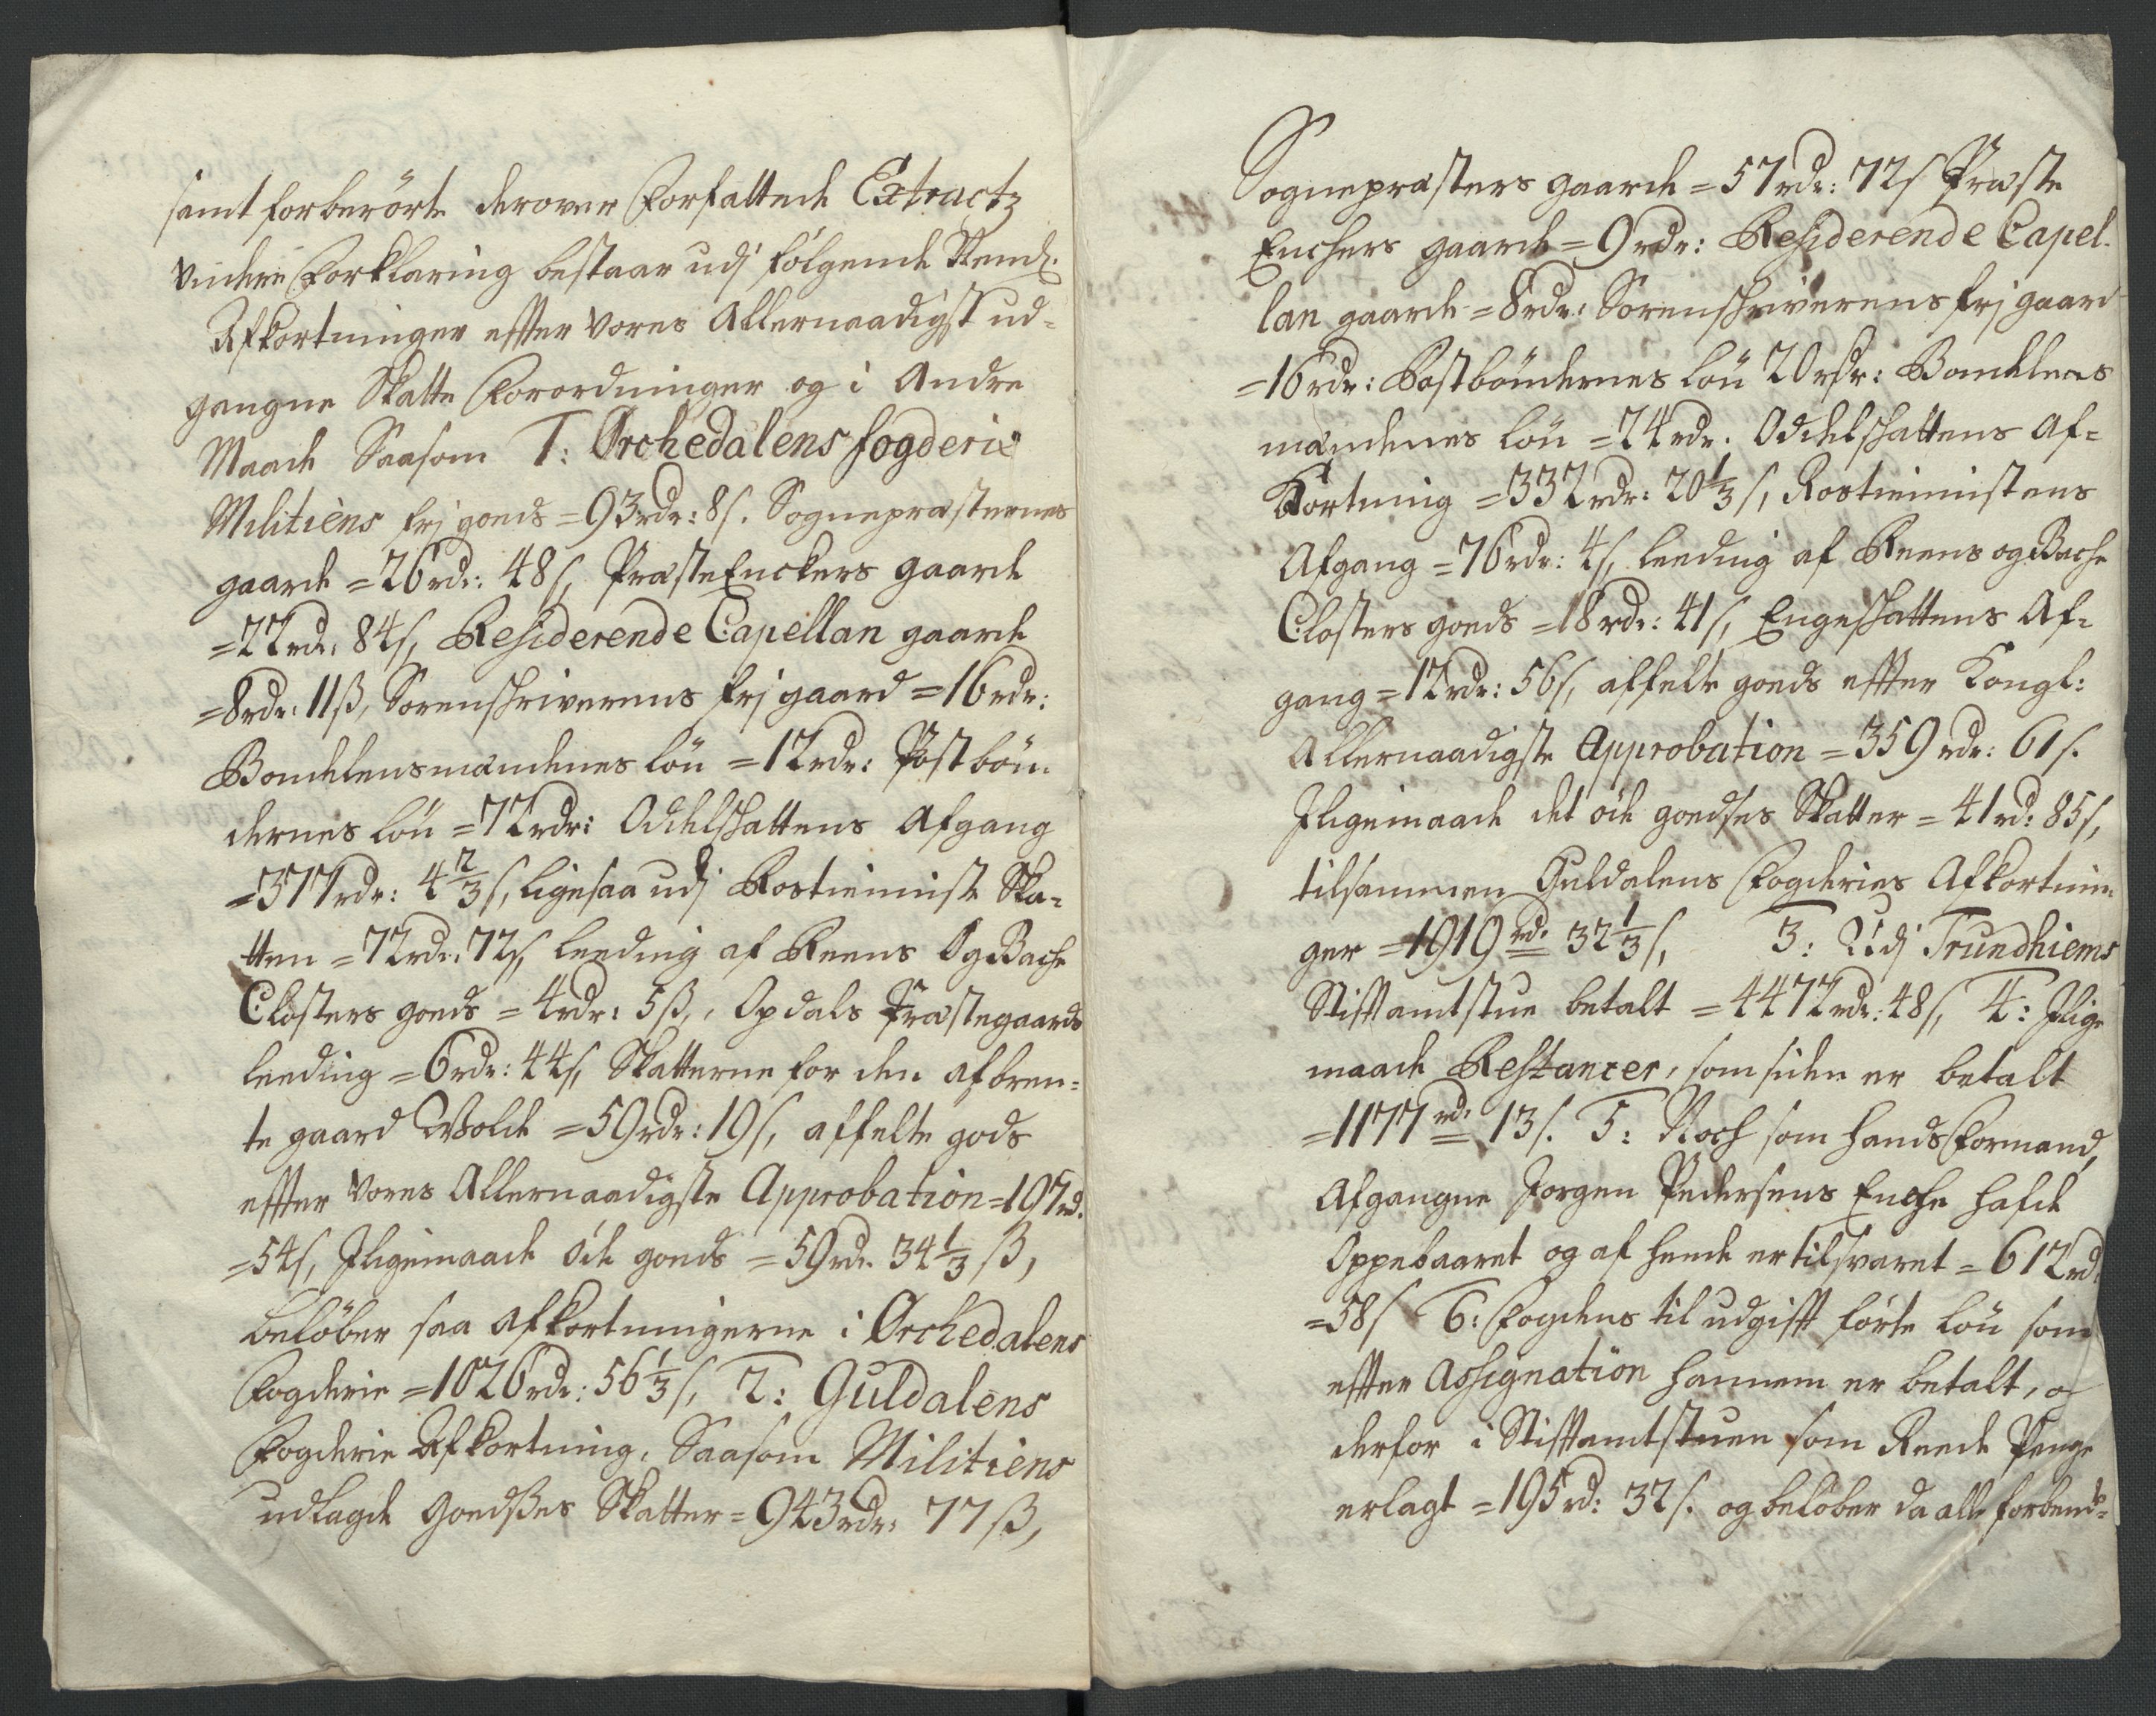 samt forberörte derover Forfattede Extractz
videre Forklaring bestaar udj følgende
Afkortninger effter Vores Allernaadigst ud-
gangne Skatte Forordninger og i Andre
Maade Saasom 1: Orchedalens fogderie
Militiens frj goeds = 93 rdr: 8 s. Sognepræsternes
gaarde = 26 rdr: 48 s, Præste Enckers gaarde
= 22 rdr: 84 s, Residerende Capellan gaarde
= 8 rdr: 11 ß, Sorenschriverens frj gaard = 16 rdr:
Bondelensmændenes lön = 12 rdr: Postbön-
dernes lön = 72 rdr: Oddelschattens Afgang
= 377 rdr: 4 2/3 s, ligesaa udj Rostieniste Ska-
tten = 72 rdr: 72 s, leeding af Reens Og Bache
Closters goeds = 4 rdr: 5 ß, Opdals Præstegaards
leeding = 6 rdr: 44 s, Skatterne for den afbren-
te gaard Wolde = 59 rdr: 19 s, affelte gods
effter Vores Allernaadigste Approbation = 197 rd.
= 54 s, Jligemaade öde goeds = 59 rdr. 34 1/3 ß,
beløber saa afkortningerne i Orchedalens
Fogderie = 1026 rdr: 56 1/3 s, 2: Guldalens
Fogderie Afkortning, Saasom Militiens
udlagde Goedßes Skatter = 943 rdr: 77 ß,
Sognepræsters gaarde = 57 rdr: 72 s Præste
Enchers gaarde = 9 rdr: Residerende Capel-
lan gaarde = 8 rdr: Sorenschriverens frj gaard
= 16 rdr: Postböndernes lön 20 rdr: Bondelens
mændenes lön = 24 rdr. Oddelschattens Af-
Kortning = 332 rdr: 20 1/3 s, Rostienistens
Afgang = 76 rdr: 4 s, leeding af Reens og Bache
Closters goeds = 18 rdr: 41 s, Engeschattens Af-
gang = 12 rdr: 56 s, affelte goeds effter Kongl:
Allernaadigste Approbation = 359 rdr: 61 s.
Jligemaade det öde goedses Skatter = 41 rd: 85 s,
tilsammen Guldalens Fogderies Afkortnin-
ger = 1919 rd. 32 1/3 s, 3: Udj Trundhiems
Stifftamtstue betalt = 4472 rdr: 48 s, 4: Jlige
maade Restancer, som siden er betalt
= 1177 rd. 13 s. 5: Noch som hands Formand,
Afgangne Jørgen Pedersens Enche hafde
Oppebaaret og af hende er tilsvaret = 612 rd.
= 58 s 6: Fogdens til udgifft förte lön som
effter Assignation hannem er betalt, og
derfor i Stifftamtstuen som Reede Penge
erlagt = 195 rd: 32 s. og beløber da alle forbende-